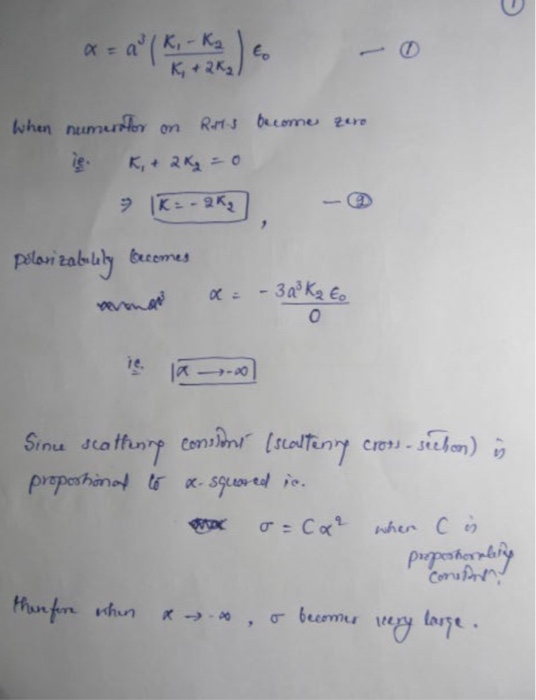 ①
α = a³ ( K₁ - K₂ / K₁ + 2K₂ ) ε₀ — ①
When numerator on R.H.S becomes zero
ie. K₁ + 2K₂ = 0
⇒ K = - 2K₂ , — ②
polarizability becomes
α = - 3a³K₂ε₀ / 0
ie. α → -∞
Since scattering constant (scattering cross-section) is
proportional to α-squared ie.
σ = Cα² when C is
proportionality
constant.
therefore when α → -∞ , σ becomes very large.